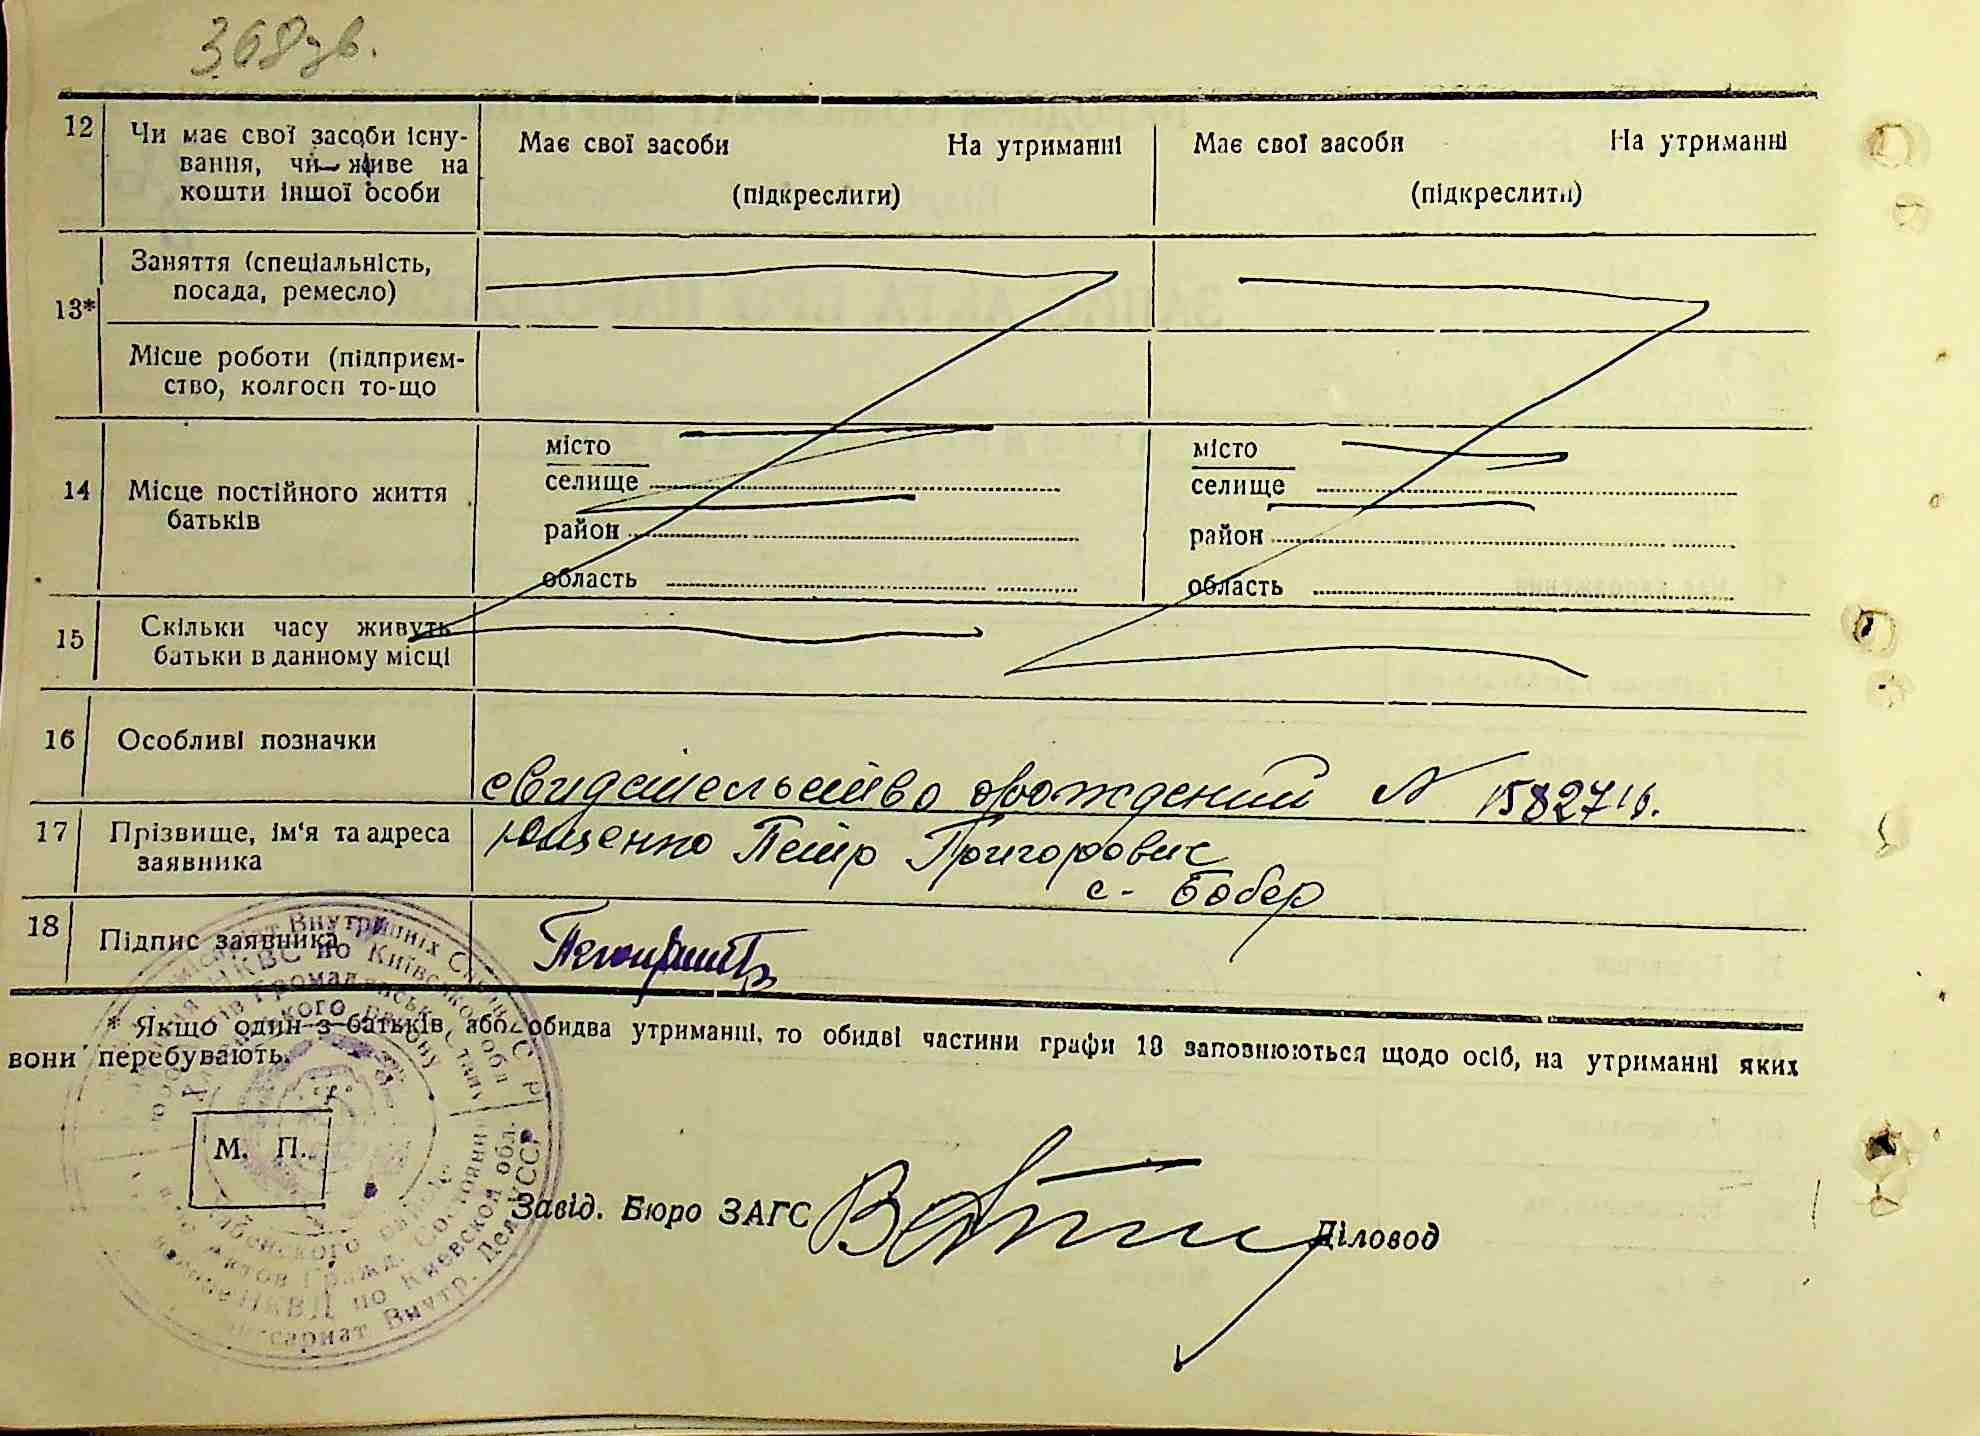 368 зв.
12 Чи має свої засоби існу-
вання, чи живе на
кошти іншої особи
Має свої засоби На утриманні
(підкреслити)
Має свої засоби На утриманні
(підкреслити)
13* Заняття (спеціальність,
посада, ремесло)
Місце роботи (підприєм-
ство, колгосп то-що
14 Місце постійного життя
батьків
місто
селище
район
область
місто
селище
район
область
15 Скільки часу живуть
батьки в данному місці
16 Особливі позначки
свидетельство
N 15827
17 Прізвище, ім'я та адреса
заявника
Ющенко Петр Григорович
с. Бобер
18 Підпис заявника
* Якщо один з батьків, або обидва утриманці, то обидві частини графи 13 заповнюються щодо осіб, на утриманні яких
вони перебувають.
М. П.
Завід. Бюро ЗАГС
Діловод